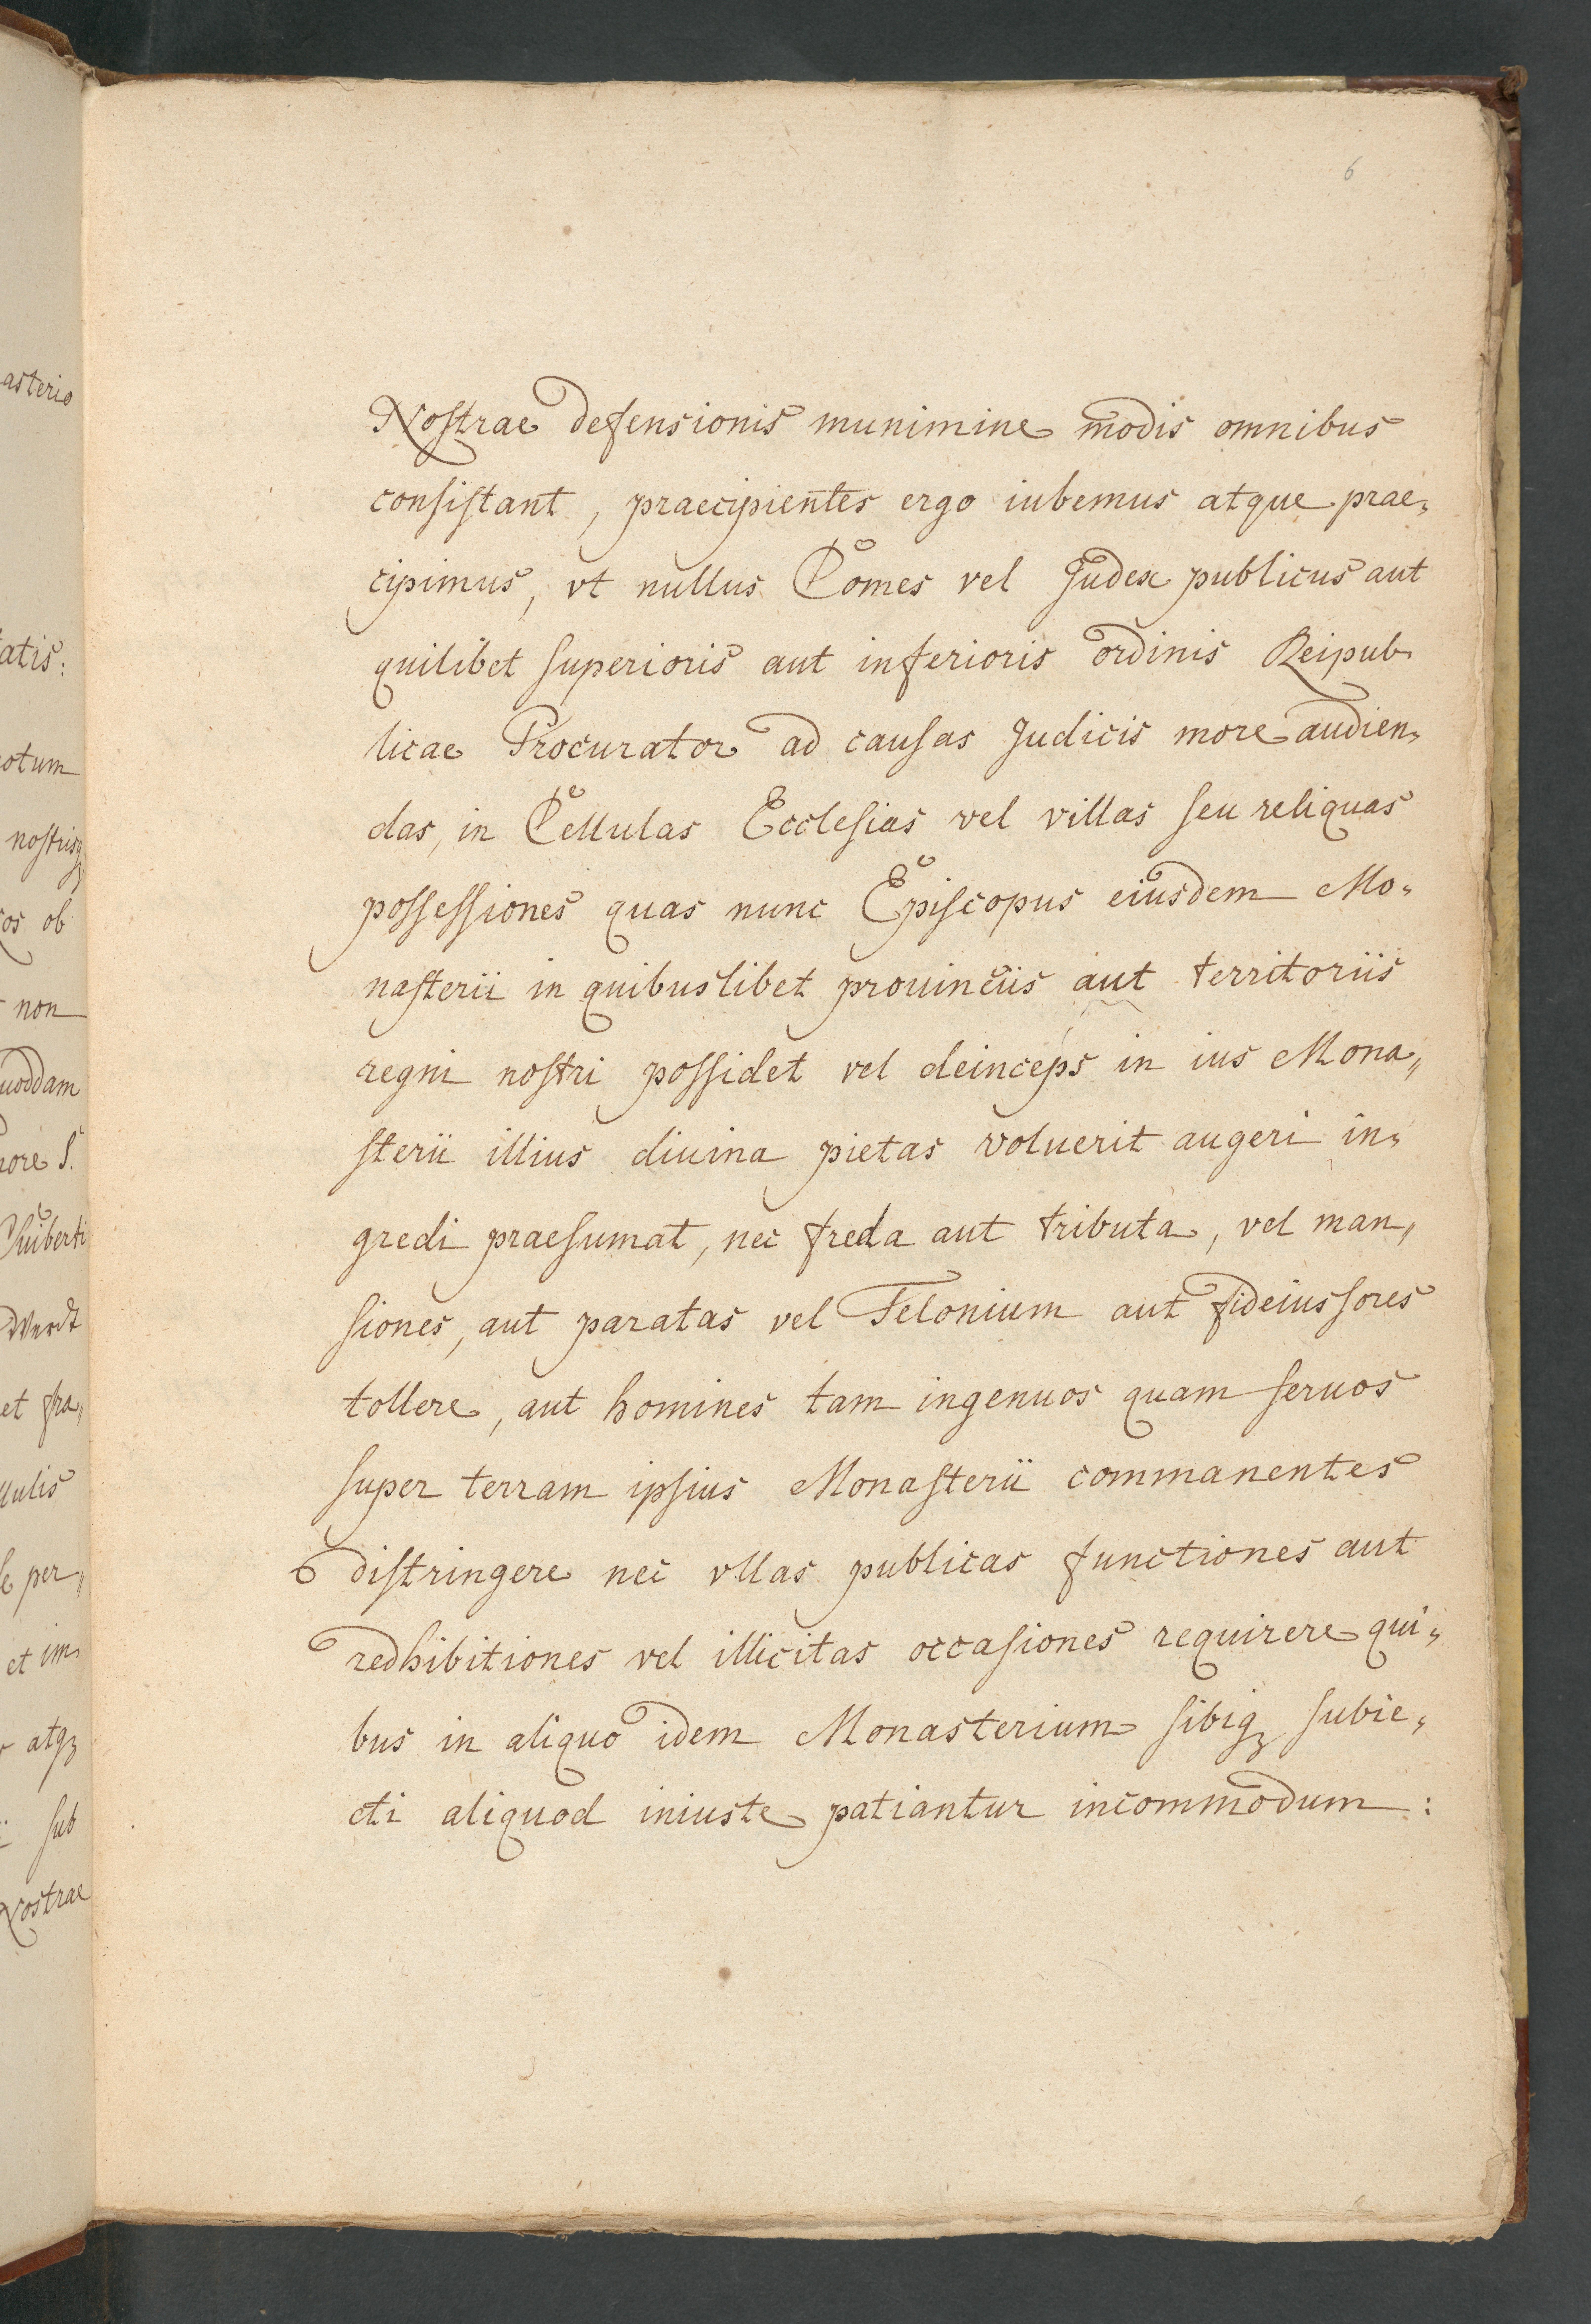 6
Nostrae defensionis munimine modis omnibus
consistant, praecipientes ergo iubemus atque prae„
cipimus, vt nullus Comes vel Judex publicus aut
quilibet superioris aut inferioris ordinis Reipub„
licae Procurator ad causas Judicis more audien„
das, in Cellulas Ecclesias vel villas seu reliquas
possessiones quas nunc Episcopus eiusdem Mo„
nasterii in quibuslibet prouinciis aut territoriis
regni nostri possidet vel deinceps in ius Mona„
sterii illius diuina pietas voluerit augeri in„
gredi praesumat, nec freda aut tributa, vel man„
siones, aut paratas vel Telonium aut fideiussores
tollere, aut homines tam ingenuos quam seruos
super terram ipsius Monasterii commanentes
distringere nec vllas publicas functiones aut
redhibitiones vel illicitas occasiones requirere qui„
bus in aliquo idem Monasterium sibiq3 subie„
cti aliquod iniuste patiantur incommodum :
asterio
tatis:
otum
nostrisq3
os ob
non
uoddam
nore S.
Suiberti
Werdt
et fra„
llulis
per„
et im„
atq3
sub
Nostrae